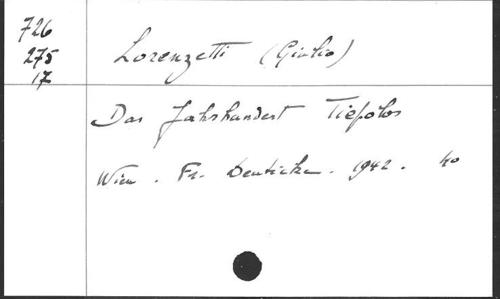 726
275
17
Lorenzetti (Giulio)
Das Jahrhundert Tiepolos
Wien. Fr. Deuticke. 1942. 40